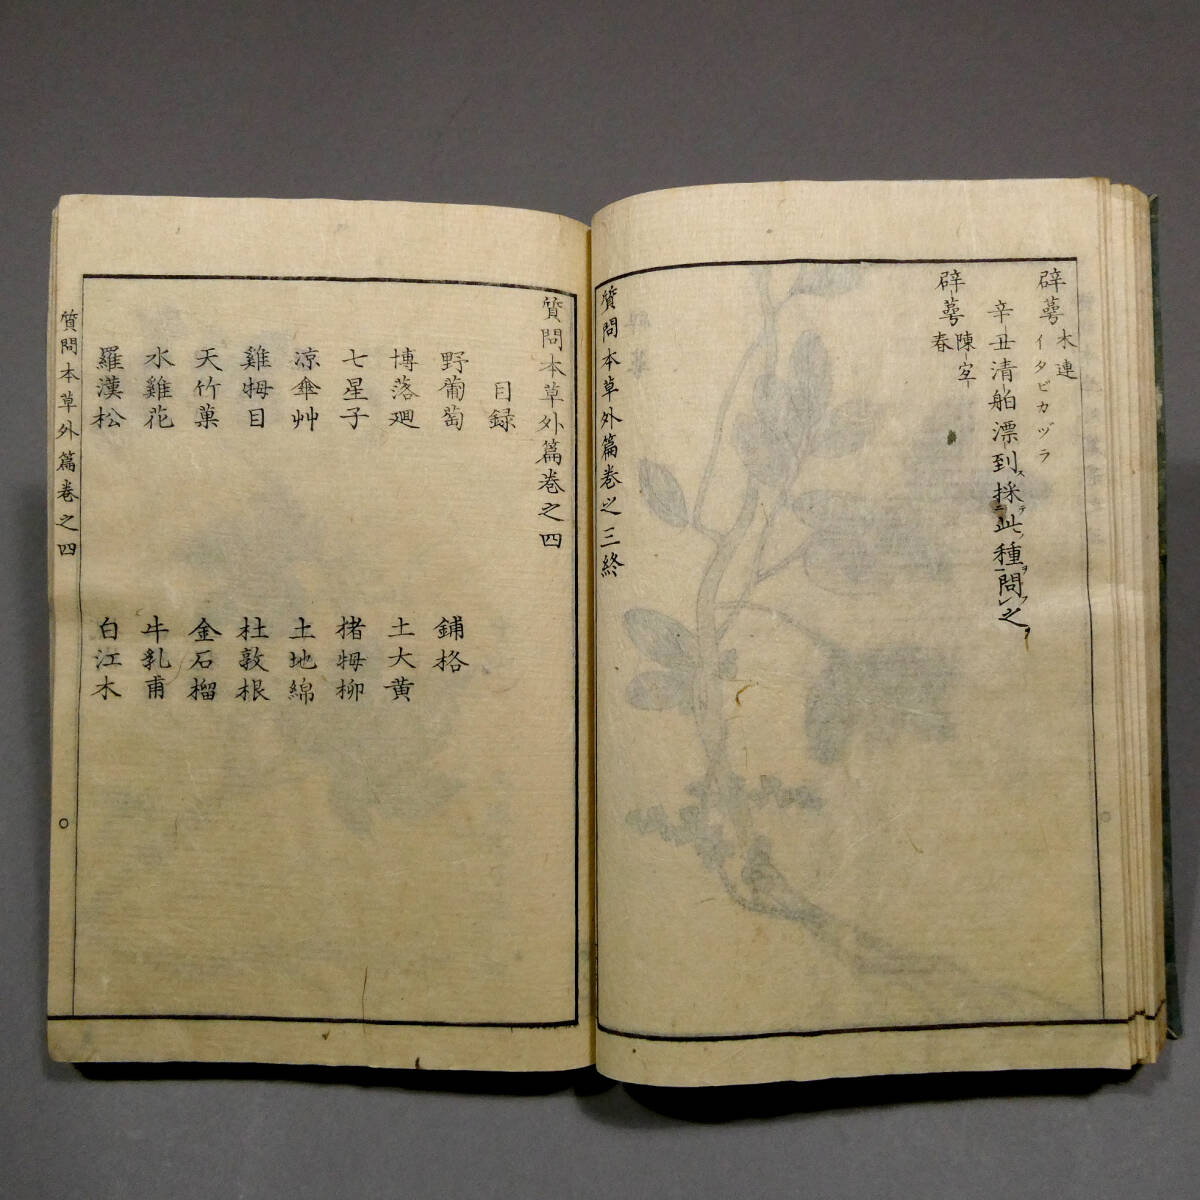 辟蕚 木連 イタビカヅラ
辛丑清舶漂到採此種問之
辟蕚 陳宰 春
質問本草外篇卷之三終
質問本草外篇卷之四
目録
野葡萄 鋪格
博落廻 土大黄
七星子 楮㹇柳
凉傘艸 土地綿
雞㹇目 杜敦根
天竹菓 金石榴
水雞花 牛乳甫
羅漢松 白江木
質問本草外篇卷之四